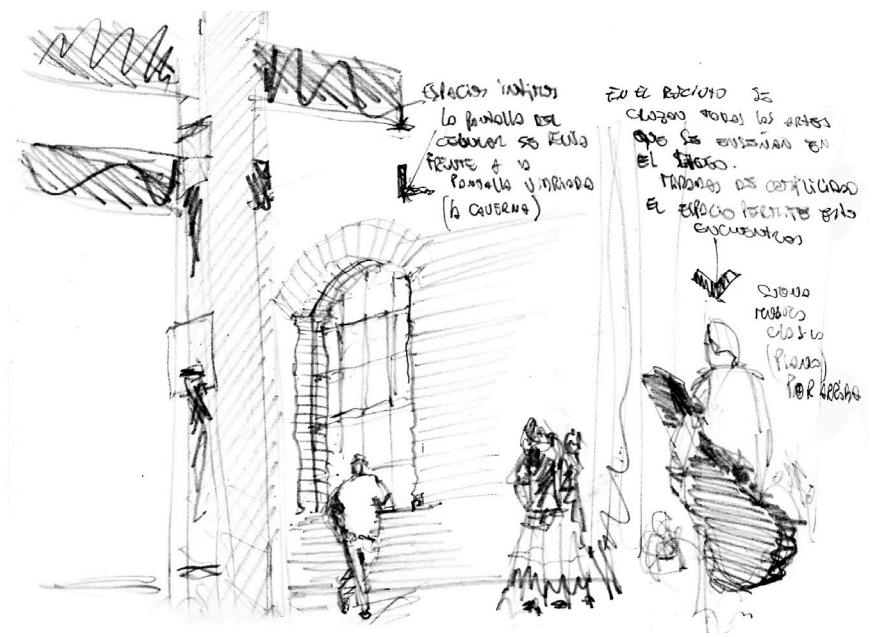 ESPACIOS INTIMOS
LA PANTALLA DEL
CELULAR SE
FRENTE A LA
PANTALLA VIDRIADA
(LA CAVERNA)
EN EL RECINTO SE
CRUZAN TODAS LAS ARTES
QUE SE ENSEÑAN EN
EL
MIRADAS DE COMPLICIDAD
EL ESPACIO PERMITE ESTOS
ENCUENTROS
SUENA
MUSICA
CLASICA
(PIANO)
POR ARRIBA